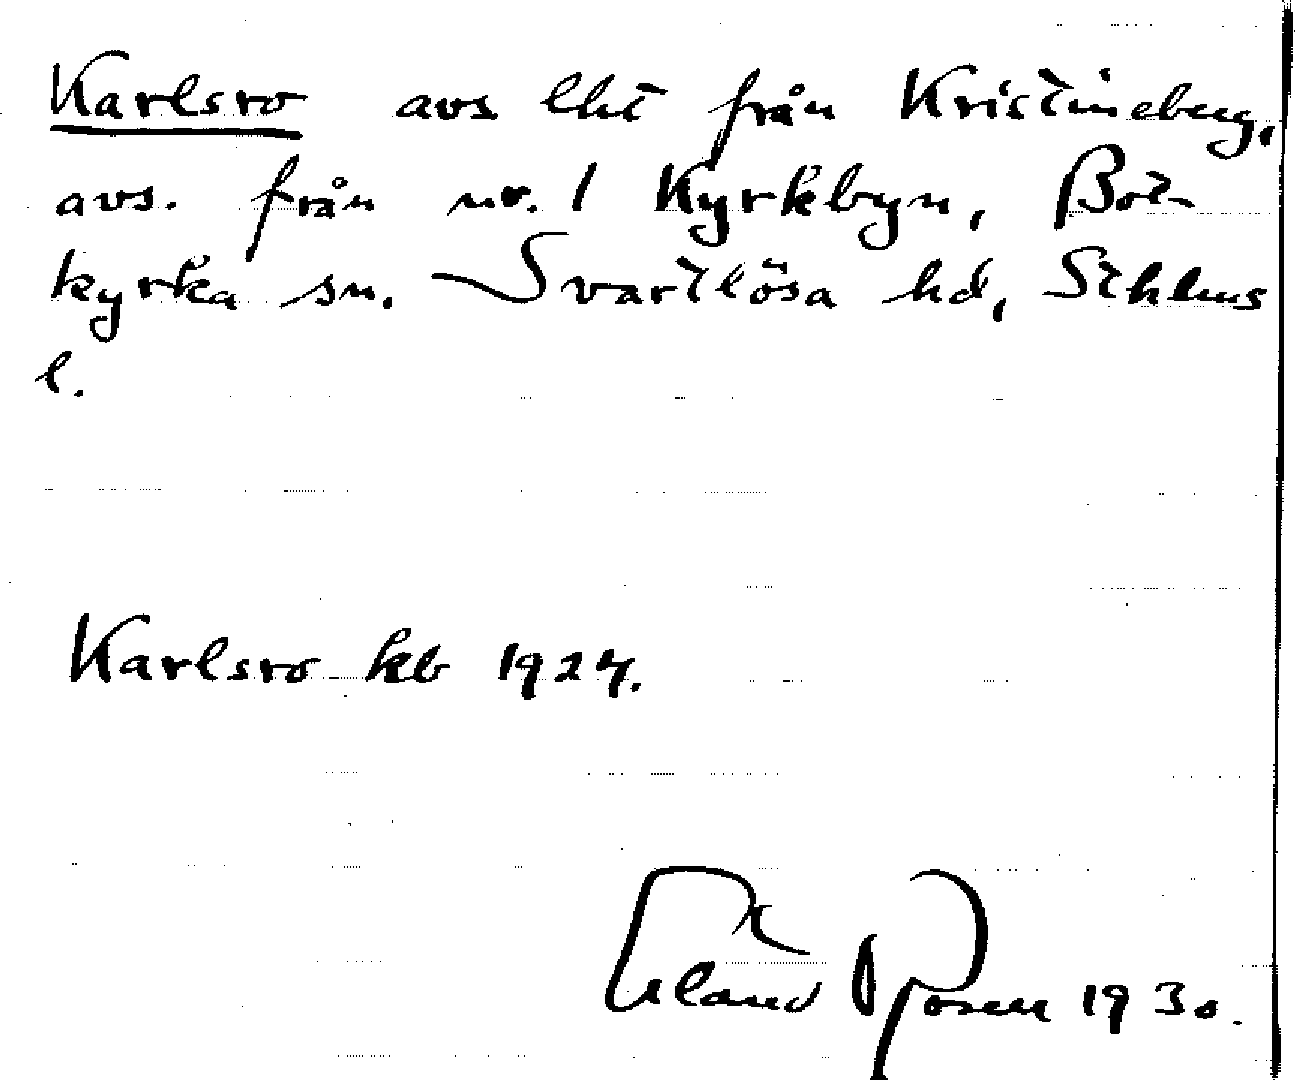 Karlsro avs lht från Kristineberg,
avs. från nr. 1 Kyrkbyn, Bot-
kyrka sn. Svartlösa hd, Sthlms
l.
Karlsro kb 1927.
Erland Rosell 1930.